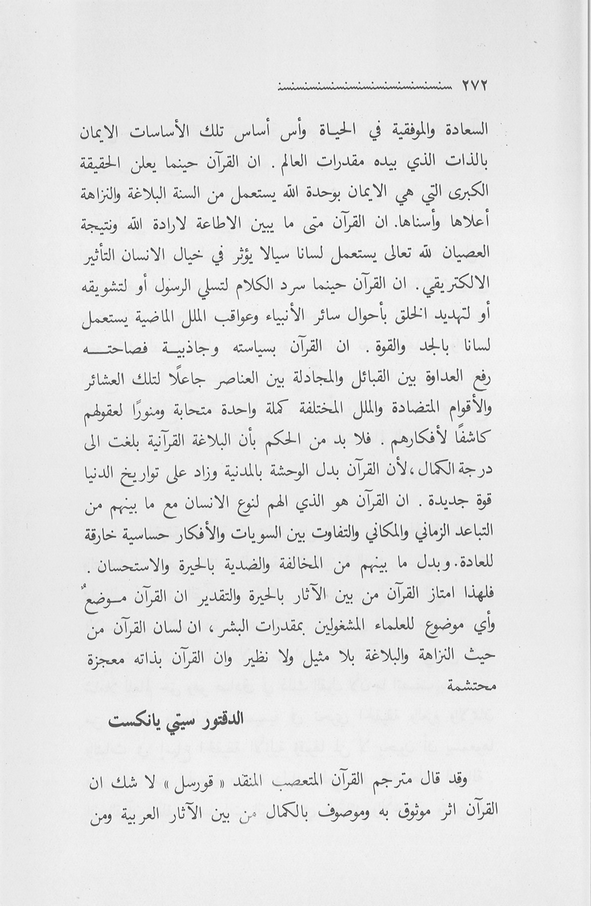 ٢٧٢
السعادة والموفقية في الحياة وأس أساس تلك الأساسات الايمان
بالذات الذي بيده مقدرات العالم . ان القرآن حينما يعلن الحقيقة
الكبرى التي هي الايمان بوحدة الله يستعمل من السنة البلاغة والنزاهة
أعلاها وأسناها. ان القرآن متى ما يبين الاطاعة لارادة الله ونتيجة
العصيان لله تعالى يستعمل لسانا سيالا يؤثر في خيال الانسان التأثير
الالكتريقي. ان القرآن حينما سرد الكلام لتسلي الرسول أو لتشويقه
أو لتهديد الخلق بأحوال سائر الأنبياء وعواقب الملل الماضية يستعمل
لسانا بالجد والقوة . ان القرآن بسياسته وجاذبيـة فصاحتـــه
رفع العداوة بين القبائل والمجادلة بين العناصر جاعلًا لتلك العشائر
والأقوام المتضادة والملل المختلفة كملة واحدة متحابة ومنورًا لعقولهم
كاشفًا لأفكارهم . فلا بد من الحكم بأن البلاغة القرآنية بلغت الى
درجة الكمال ،لأن القرآن بدل الوحشة بالمدنية وزاد على تواريخ الدنيا
قوة جديدة . ان القرآن هو الذي الهم لنوع الانسان مع ما بينهم من
التباعد الزماني والمكاني والتفاوت بين السويات والأفكار حساسية خارقة
للعادة. وبدل ما بينهم من المخالفة والضدية بالحيرة والاستحسان .
فلهذا امتاز القرآن من بين الآثار بالحيرة والتقدير ان القرآن مـوضعٌ
وأي موضوع للعلماء المشغولين بمقدرات البشر ، ان لسان القرآن من
حيث النزاهة والبلاغة بلا مثيل ولا نظير وان القرآن بذاته معجزة
محتشمة
الدقتور سيتي يانكست
وقد قال مترجم القرآن المتعصب المنقد « قورسل » لا شك ان
القرآن اثر موثوق به وموصوف بالكمال من بين الآثار العربية ومن